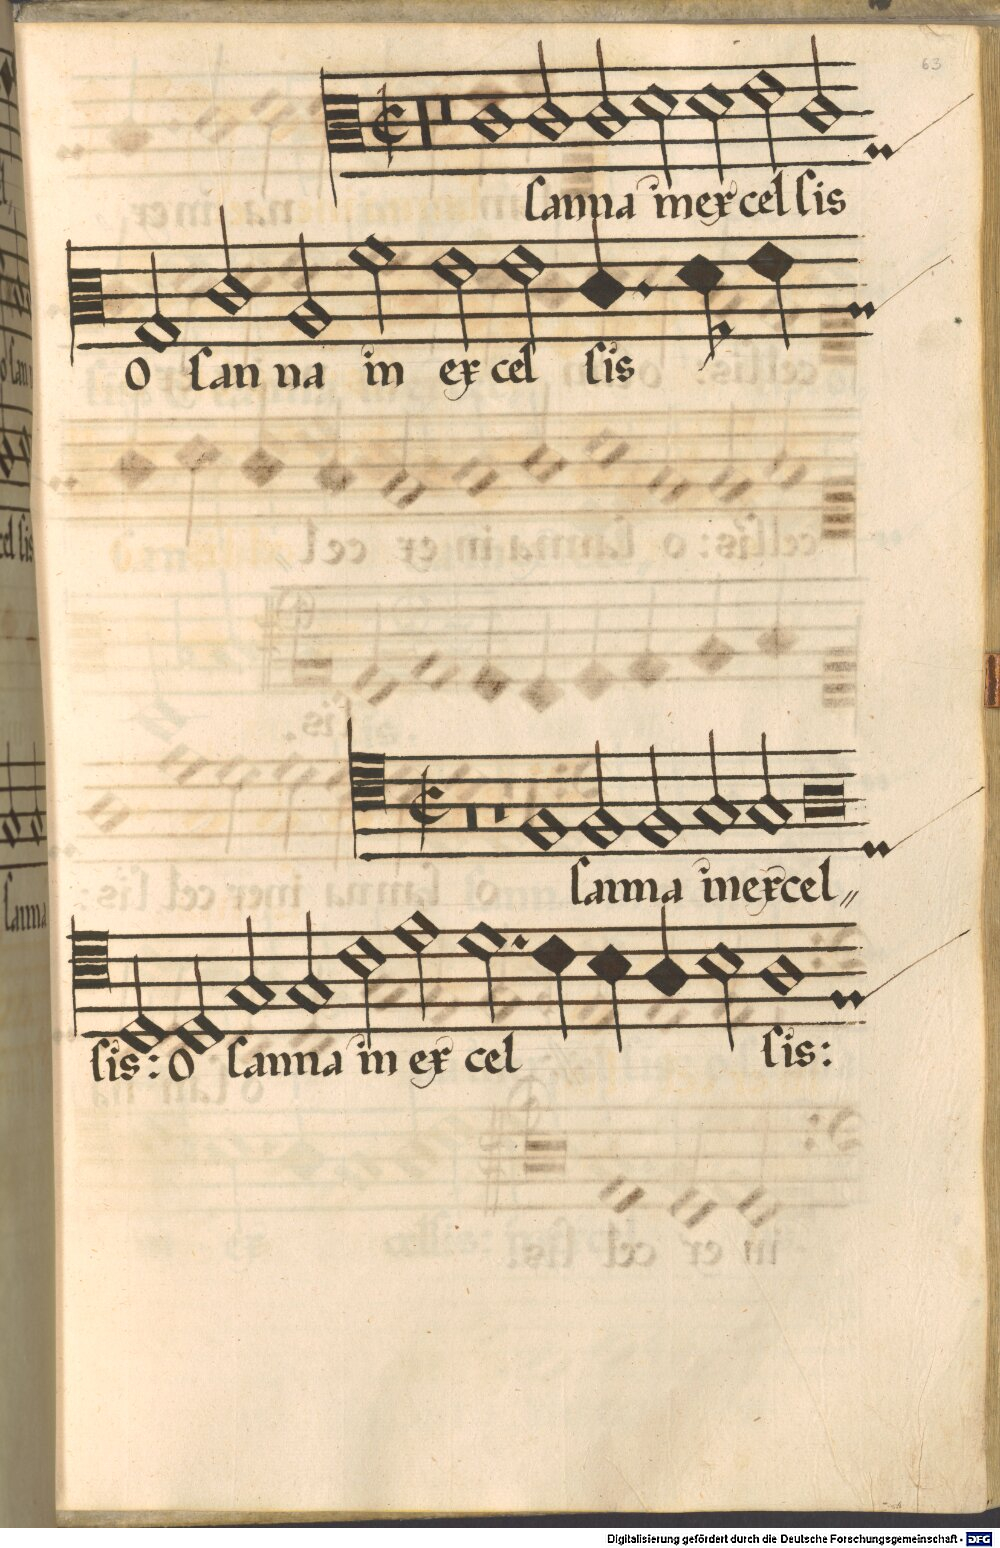 63
sanna in excelsis
O san na in ex cel sis
sanna in excel〃
sis: O sanna in ex cel sis:
Digitalisierung gefördert durch die Deutsche Forschungsgemeinschaft - DFG